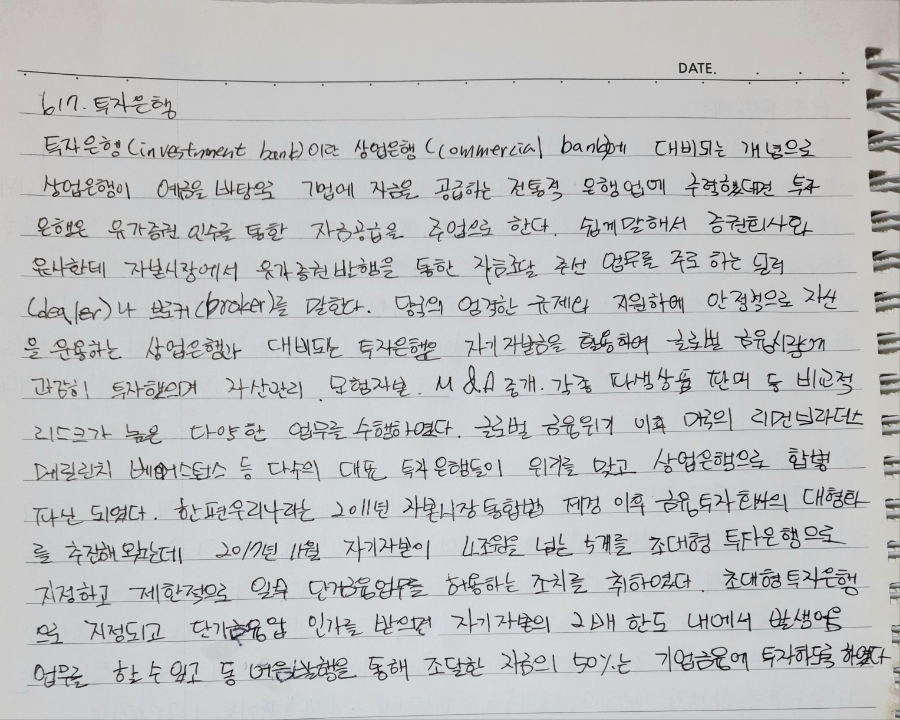 DATE.
617. 투자은행
투자은행(investment bank)이란 상업은행(commercial bank)에 대비되는 개념으로
상업은행이 예금을 바탕으로 기업에 자금을 공급하는 전통적 은행업에 주력했다면 투자
은행은 유가증권 인수를 통한 자금공급을 주업으로 한다. 쉽게말해서 증권회사와
유사한데 자본시장에서 유가증권발행을 통한 자금조달 주선 업무를 주로 하는 딜러
(dealer)나 브로커(broker)를 말한다. 당국의 엄격한 규제와 지원하에 안정적으로 자산
을 운용하는 상업은행과 대비되는 투자은행은 자기자본금을 활용하여 글로벌 금융시장에
과감히 투자했으며 자산관리. 모험자본. M&A 중개. 각종 파생상품 판매 등 비교적
리스크가 높은 다양한 업무를 수행하였다. 글로벌 금융위기 이후 미국의 리먼브라더스
메릴린치 베어스턴스 등 다수의 대표 투자은행들이 위기를 맞고 상업은행으로 합병
파산 되였다. 한편우리나라는 2011년 자본시장통합법 제정 이후 금융투자회사의 대형화
를 추진해왔는데 2017년 11월 자기자본이 4조원을 넘는 5개를 초대형 투자은행으로
지정하고 제한적으로 일부 단기금융업무를 허용하는 조치를 취하였다. 초대형투자은행
으로 지정되고 단기금융업 인가를 받으면 자기자본의 2배 한도 내에서 발행어음
업무를 할 수 있고 동 어음발행을 통해 조달한 자금의 50%는 기업금융에 투자하도록 하였다